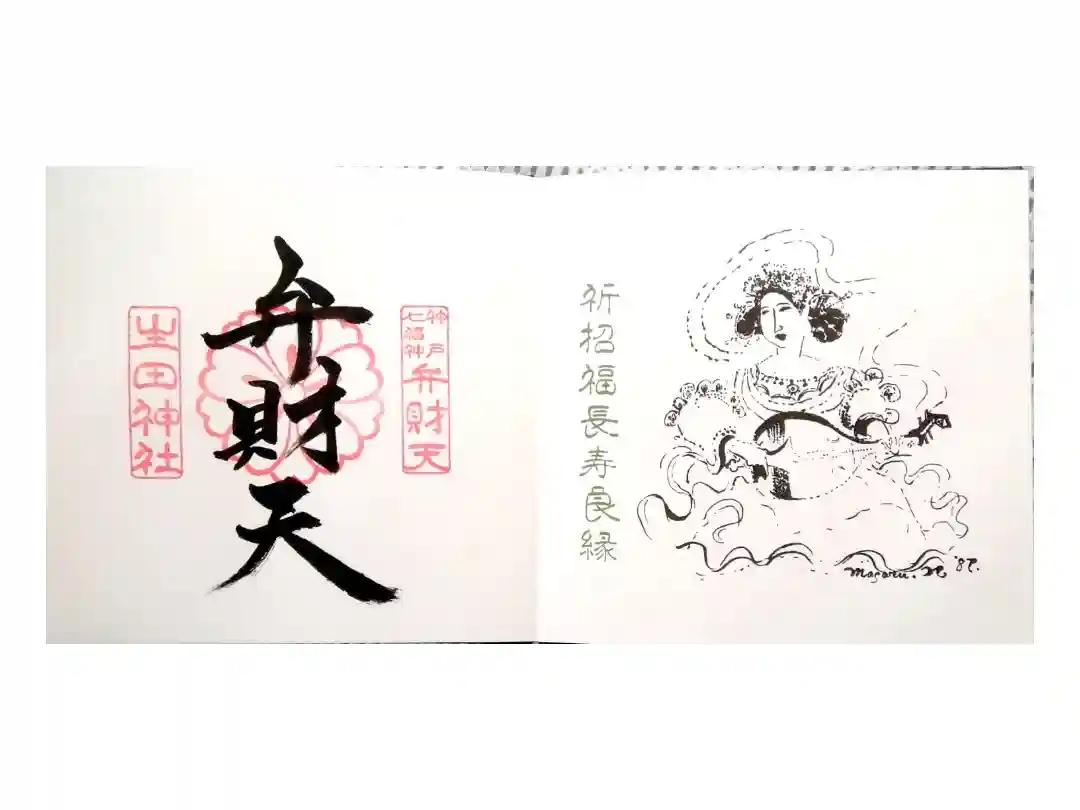 神戸
七福神
弁財天
弁財天
生田神社
祈招福長寿良縁
Masaru.
'87.